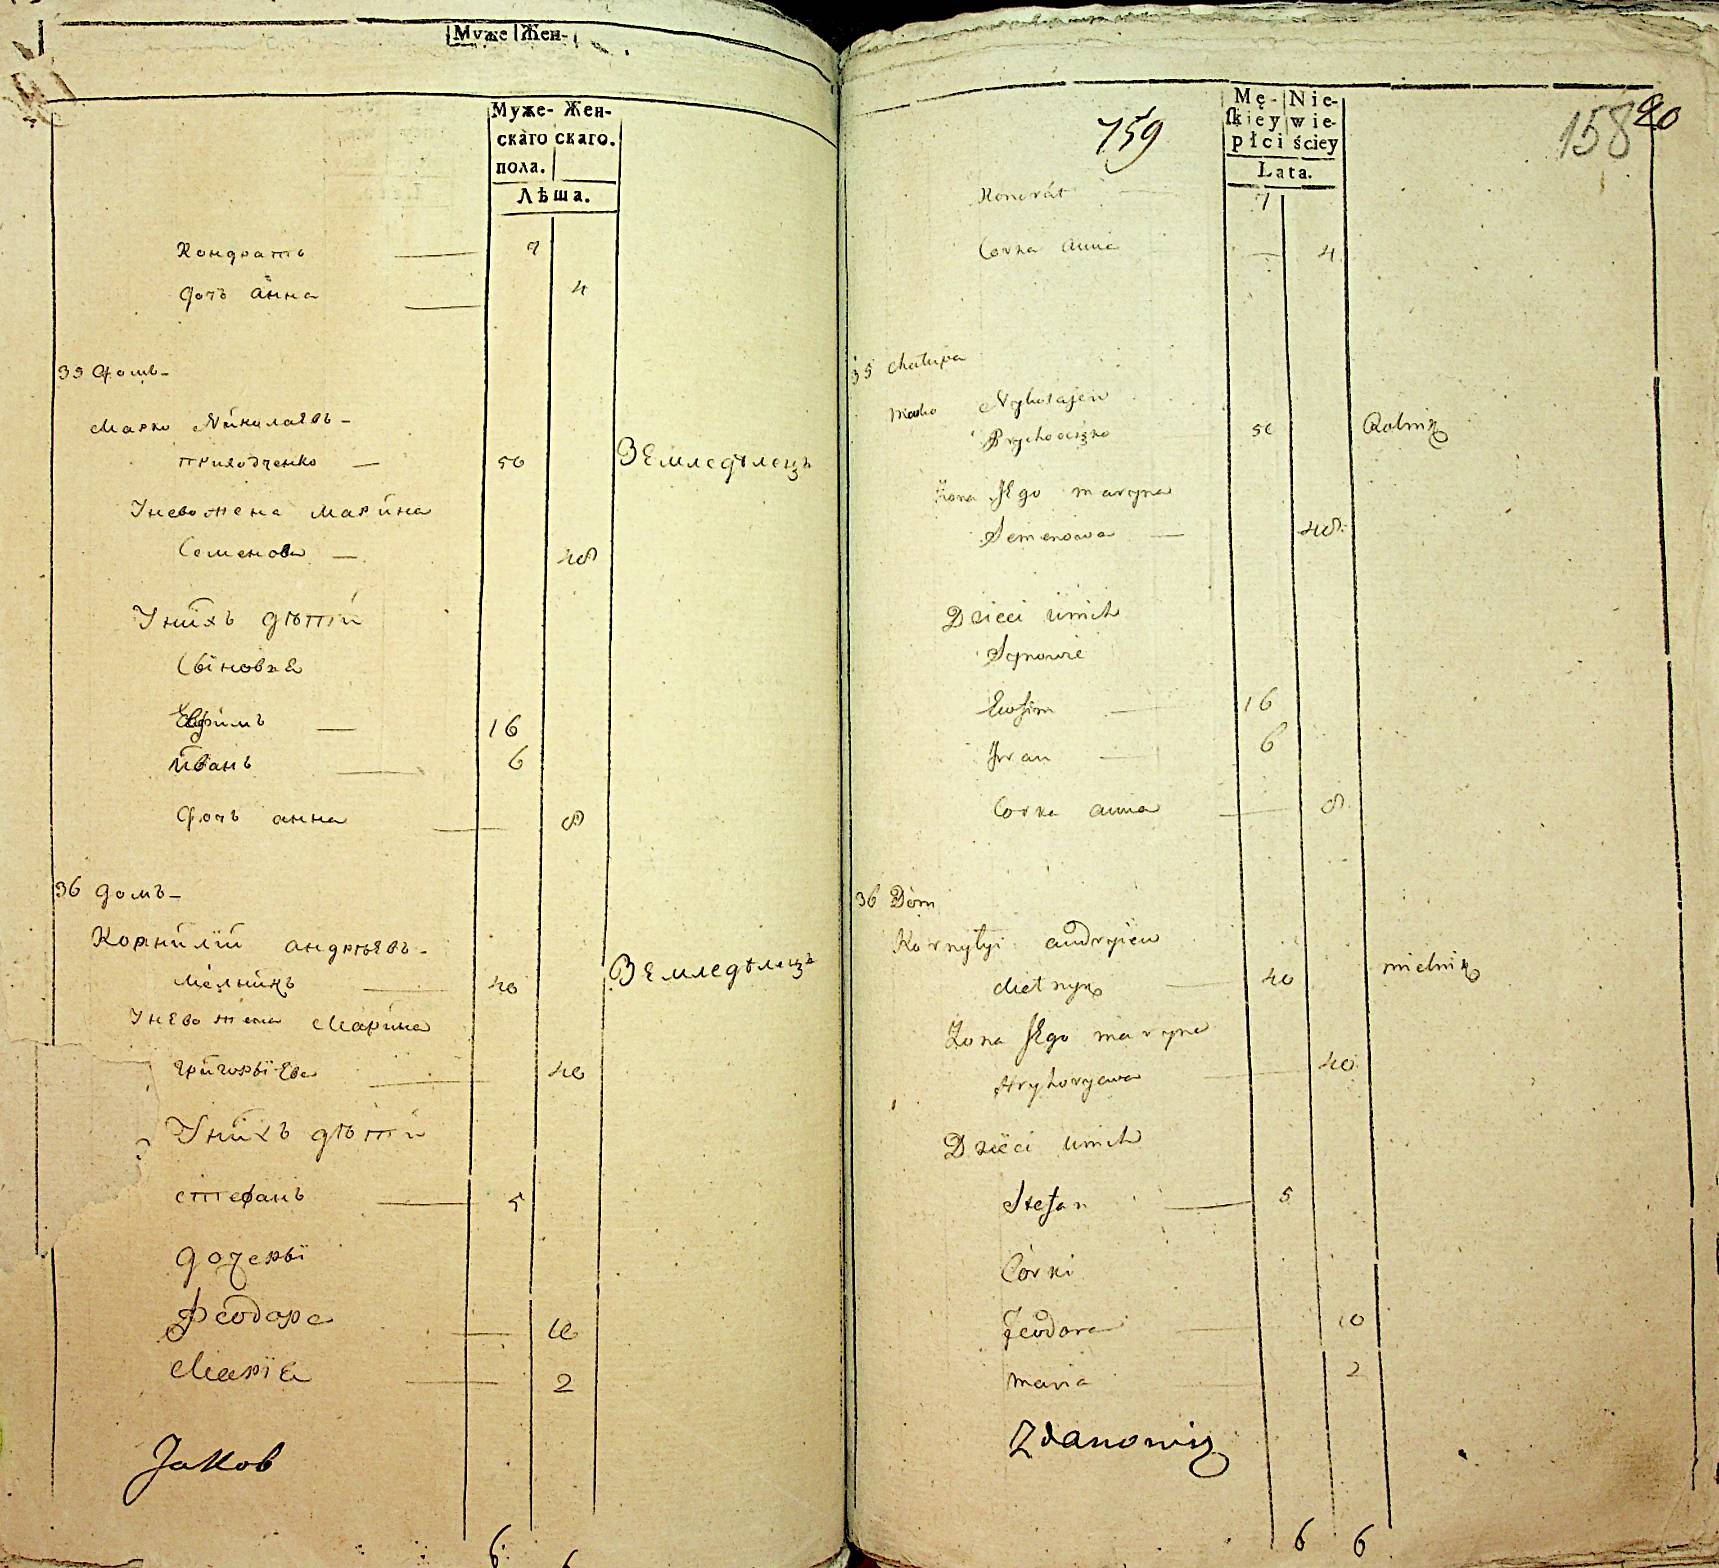 Муже Жен-
Муже- Жен-
скаго скаго.
пола.
Лѣта.
Кондратъ — 7
дочь анна — 4
35 домъ-
Марко Николаевъ-
приходченко — 50 Земледѣлецъ
Унево жена Марина
Семенова — 48
Унихъ дѣти
Сыновья
Ефимъ — 16
иванъ — 6
дочь анна — 8
36 домъ-
Корнилiй андреевъ-
мелникъ — 40 Земледѣлецъ
Унево жена Марина
григорьiева — 40
Унихъ дѣти
стефанъ — 5
дочерьi
феодора — 10
Марiя — 2
Jakob
6. 6
759
158
20
Mę- Nie-
ſkiey wie-
płci ściey
Lata.
Kondrát — 7
Corka anna — 4
35 chałupa
Marko Nykołajew
Prychodczko 50 Rolnik
Żona Jego maryna
Semenowa — 48.
Dzieci unich
Synowie
Ewfim — 16
Iwan — 6
Corka anna — 8
36 Dom
Kornyłyi andryiew
Mełnyk — 40 mielnik
Żona Jego maryna
Hryhoryewa — 40
Dzieci unich
Stefan — 5
Córki
Feodora — 10
maria — 2
Zdanowicz
6 6